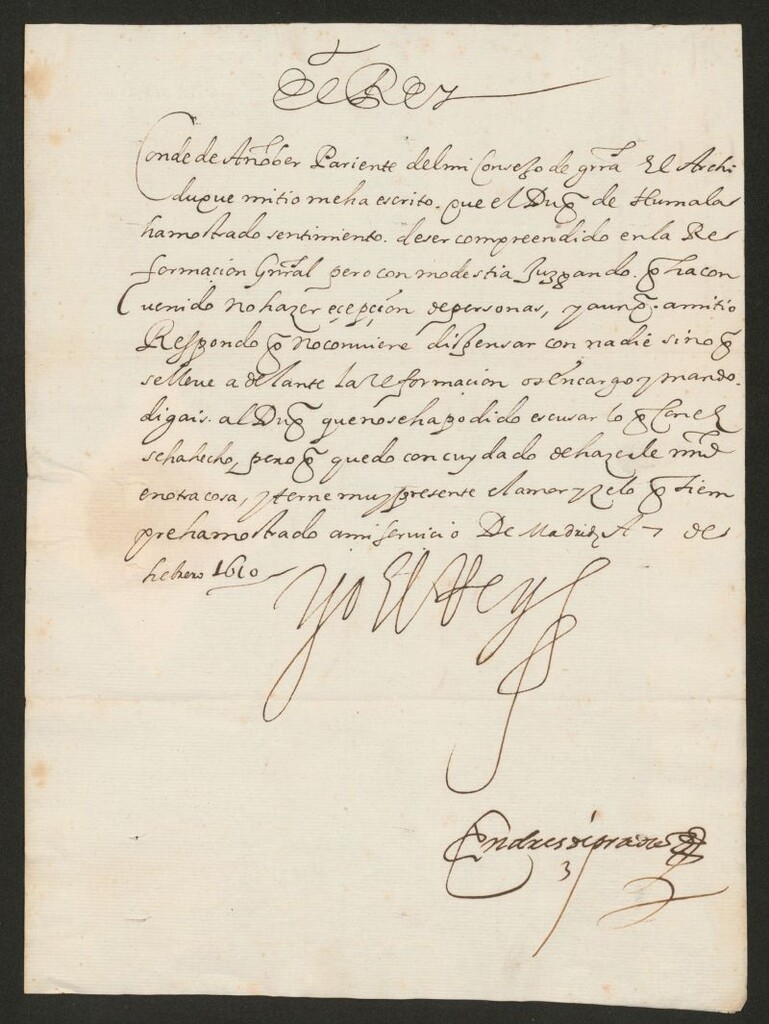 El Rey
Conde de Añober Pariente del mi Consejo de grra El Archi
duque mi tio me ha escrito. que el Duq de Humala
ha mostrado sentimiento. de ser compreendido en la Re
formacion Gnral pero con modestia Juzgando. q ha con
uenido no hazer eçepçion de personas, y aunq. a mi tio
Respondo q no conuiene dispensar con nadie sino q
se lleue adelante la reformacion os encargo y mando.
digais. al Duq que no se ha podido escusar lo q con el
se ha hecho, pero q quedo con cuydado de hazerle mrd
en otra cosa, y terne muy presente el amor y zelo q siem
pre ha mostrado a mi seruicio De Madrid A 7 de
hebrero 1610
Yo El Rey
Andres de prada
3